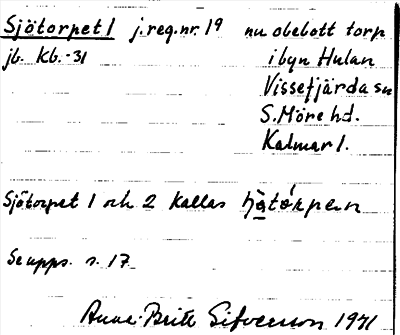 Sjötorpet 1 j.reg.nr 19 nu obebott torp
jb. Kb.-31 i byn Hulan
Vissefjärda sn
S. Möre hd.
Kalmar l.
Sjötorpet 1 och 2 kallas
Se upps. s. 17
Anna-Britt Sifversson 1971